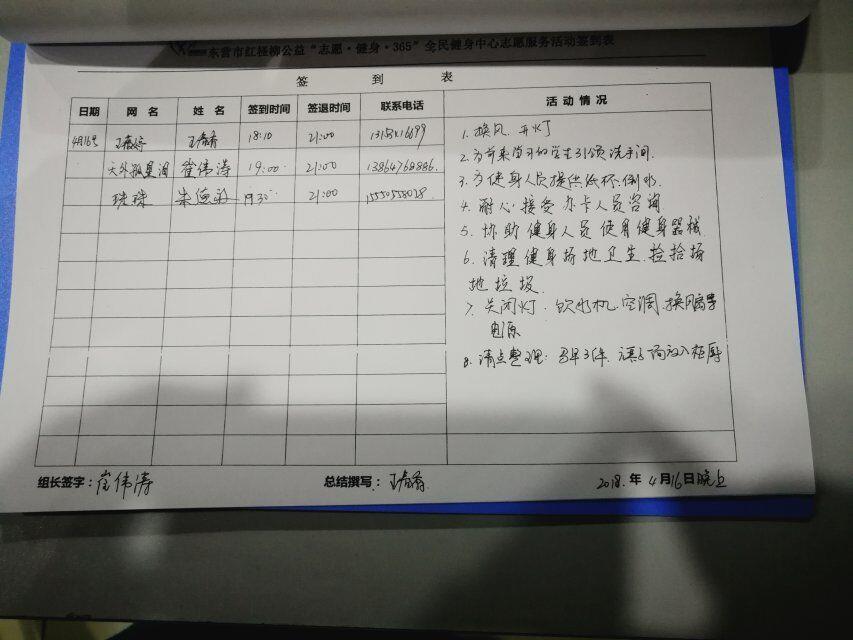 东营市红柽柳公益“志愿·健身·365”全民健身中心志愿服务活动签到表
签 到 表
日期 网 名 姓 名 签到时间 签退时间 联系电话 活 动 情 况
4月16号 18:10 21:00
崔伟涛 19:00 21:00 13864768886
珠珠 19:30 21:00 15550558028
1. 换风、开灯
2. 为前来学习的学生引领洗手间.
3. 为健身人员提供纸杯、倒水.
4. 耐心接受办卡人员咨询
5. 协助健身人员使用健身器械
6. 清理健身场地卫生.捡拾场
地垃圾.
7. 关闭灯.饮水机.空调.换风扇等
电源
8. 清点整理: 放入柜厨
组长签字: 崔伟涛 总结撰写: 王春香 2018.年 4月16日晚上